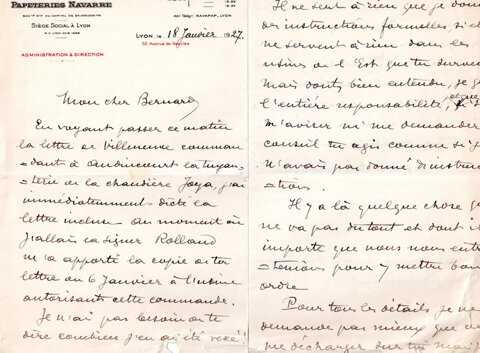 PAPETERIES NAVARRE
SIÈGE SOCIAL À LYON
ADMINISTRATION & DIRECTION
LYON, le 18 Janvier 1927.
Mon cher Bernard
En voyant passer ce matin
la lettre de Villeneuve comman
dant à Audincourt la tuyau-
=terie de la chaudière Joya, j'ai
immédiatement dicté la
lettre incluse. Au moment où
j'allais la signer Rolland
m'a apporté la copie de ta
lettre du 6 Janvier à l'usine
autorisant cette commande.
Je n'ai pas besoin de te
dire combien j'en ai été vexé!
Il ne sert à rien que je donne
des instructions formelles, si elles
ne servent à rien dans les
usines de l'Est que tu
mais dont, bien entendu, je
l'entière responsabilité, et que
m'aviser ni me demander
conseil tu agis comme si je
n'avais pas donné d'instruc
=tions.
Il y a là quelque chose qui
ne va pas du tout et dont il
importe que nous nous entre
=tenions pour y mettre bon
ordre
Pour tous les détails je ne
demande pas mieux que de
me décharger sur toi mais